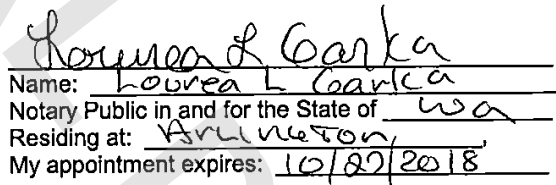 Lourea L Garka
Name: Lourea L Garka
Notary Public in and for the State of wa
Residing at: Arlington,
My appointment expires: 10/27/2018